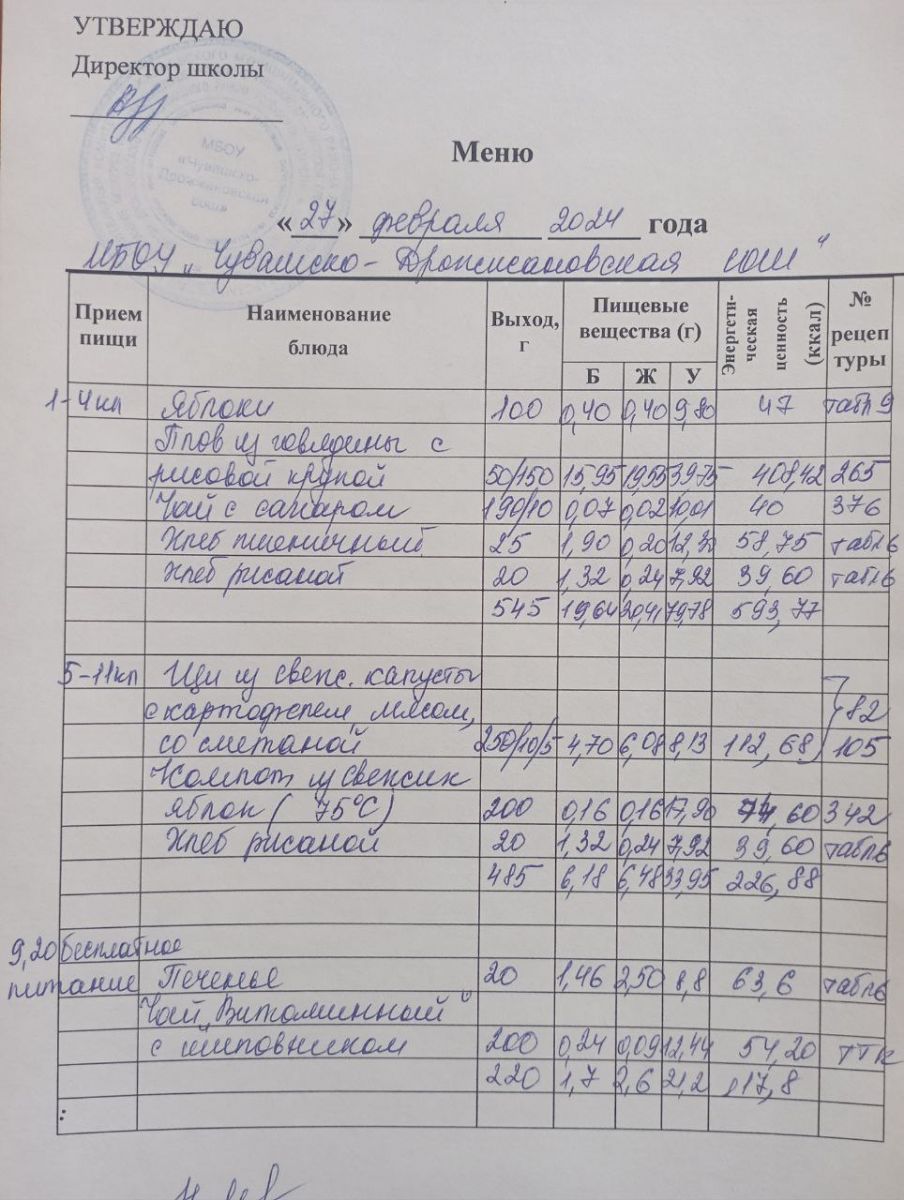 УТВЕРЖДАЮ
Директор школы
МБОУ
«Чувашско-
Дрожжановская
сош»
Меню
« 27 » февраля 2024 года
МБОУ „Чувашско-Дрожжановская сош"
Прием пищи Наименование блюда Выход, г Пищевые вещества (г) Б Ж У Энергети-ческая ценность (ккал) № рецептуры
1-4кл Яблоки 100 0,40 0,40 9,80 47 табл 9
Плов из говядины с
рисовой крупой 50/150 15,95 19,55 39,75 408,42 265
Чай с сахаром 190/10 0,07 0,02 10,01 40 376
Хлеб пшеничный 25 1,90 0,20 12,30 58,75 табл6
Хлеб ржаной 20 1,32 0,24 7,92 39,60 табл6
545 19,64 20,41 79,78 593,77
5-11кл Щи из свеж. капусты
с картофелем, мясом, 82
со сметаной 250/10/5 4,70 6,08 8,13 112,68 105
Компот из свежих
яблок ( 75°С) 200 0,16 0,16 17,90 74,60 342
Хлеб ржаной 20 1,32 0,24 7,92 39,60 табл6
485 6,18 6,48 33,95 226,88
9,20 бесплатное
питание Печенье 20 1,46 2,50 8,8 63,6 табл6
Чай „Витаминный"
с шиповником 200 0,24 0,09 12,44 54,20 ТТК
220 1,7 2,6 21,2 117,8
: